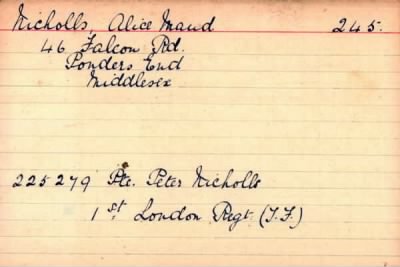 Nicholls, Alice Maud 245.
46 Falcon Rd.
Ponders End
Middlesex
225279 Pte. Peter Nicholls
1st London Regt (T.F.)